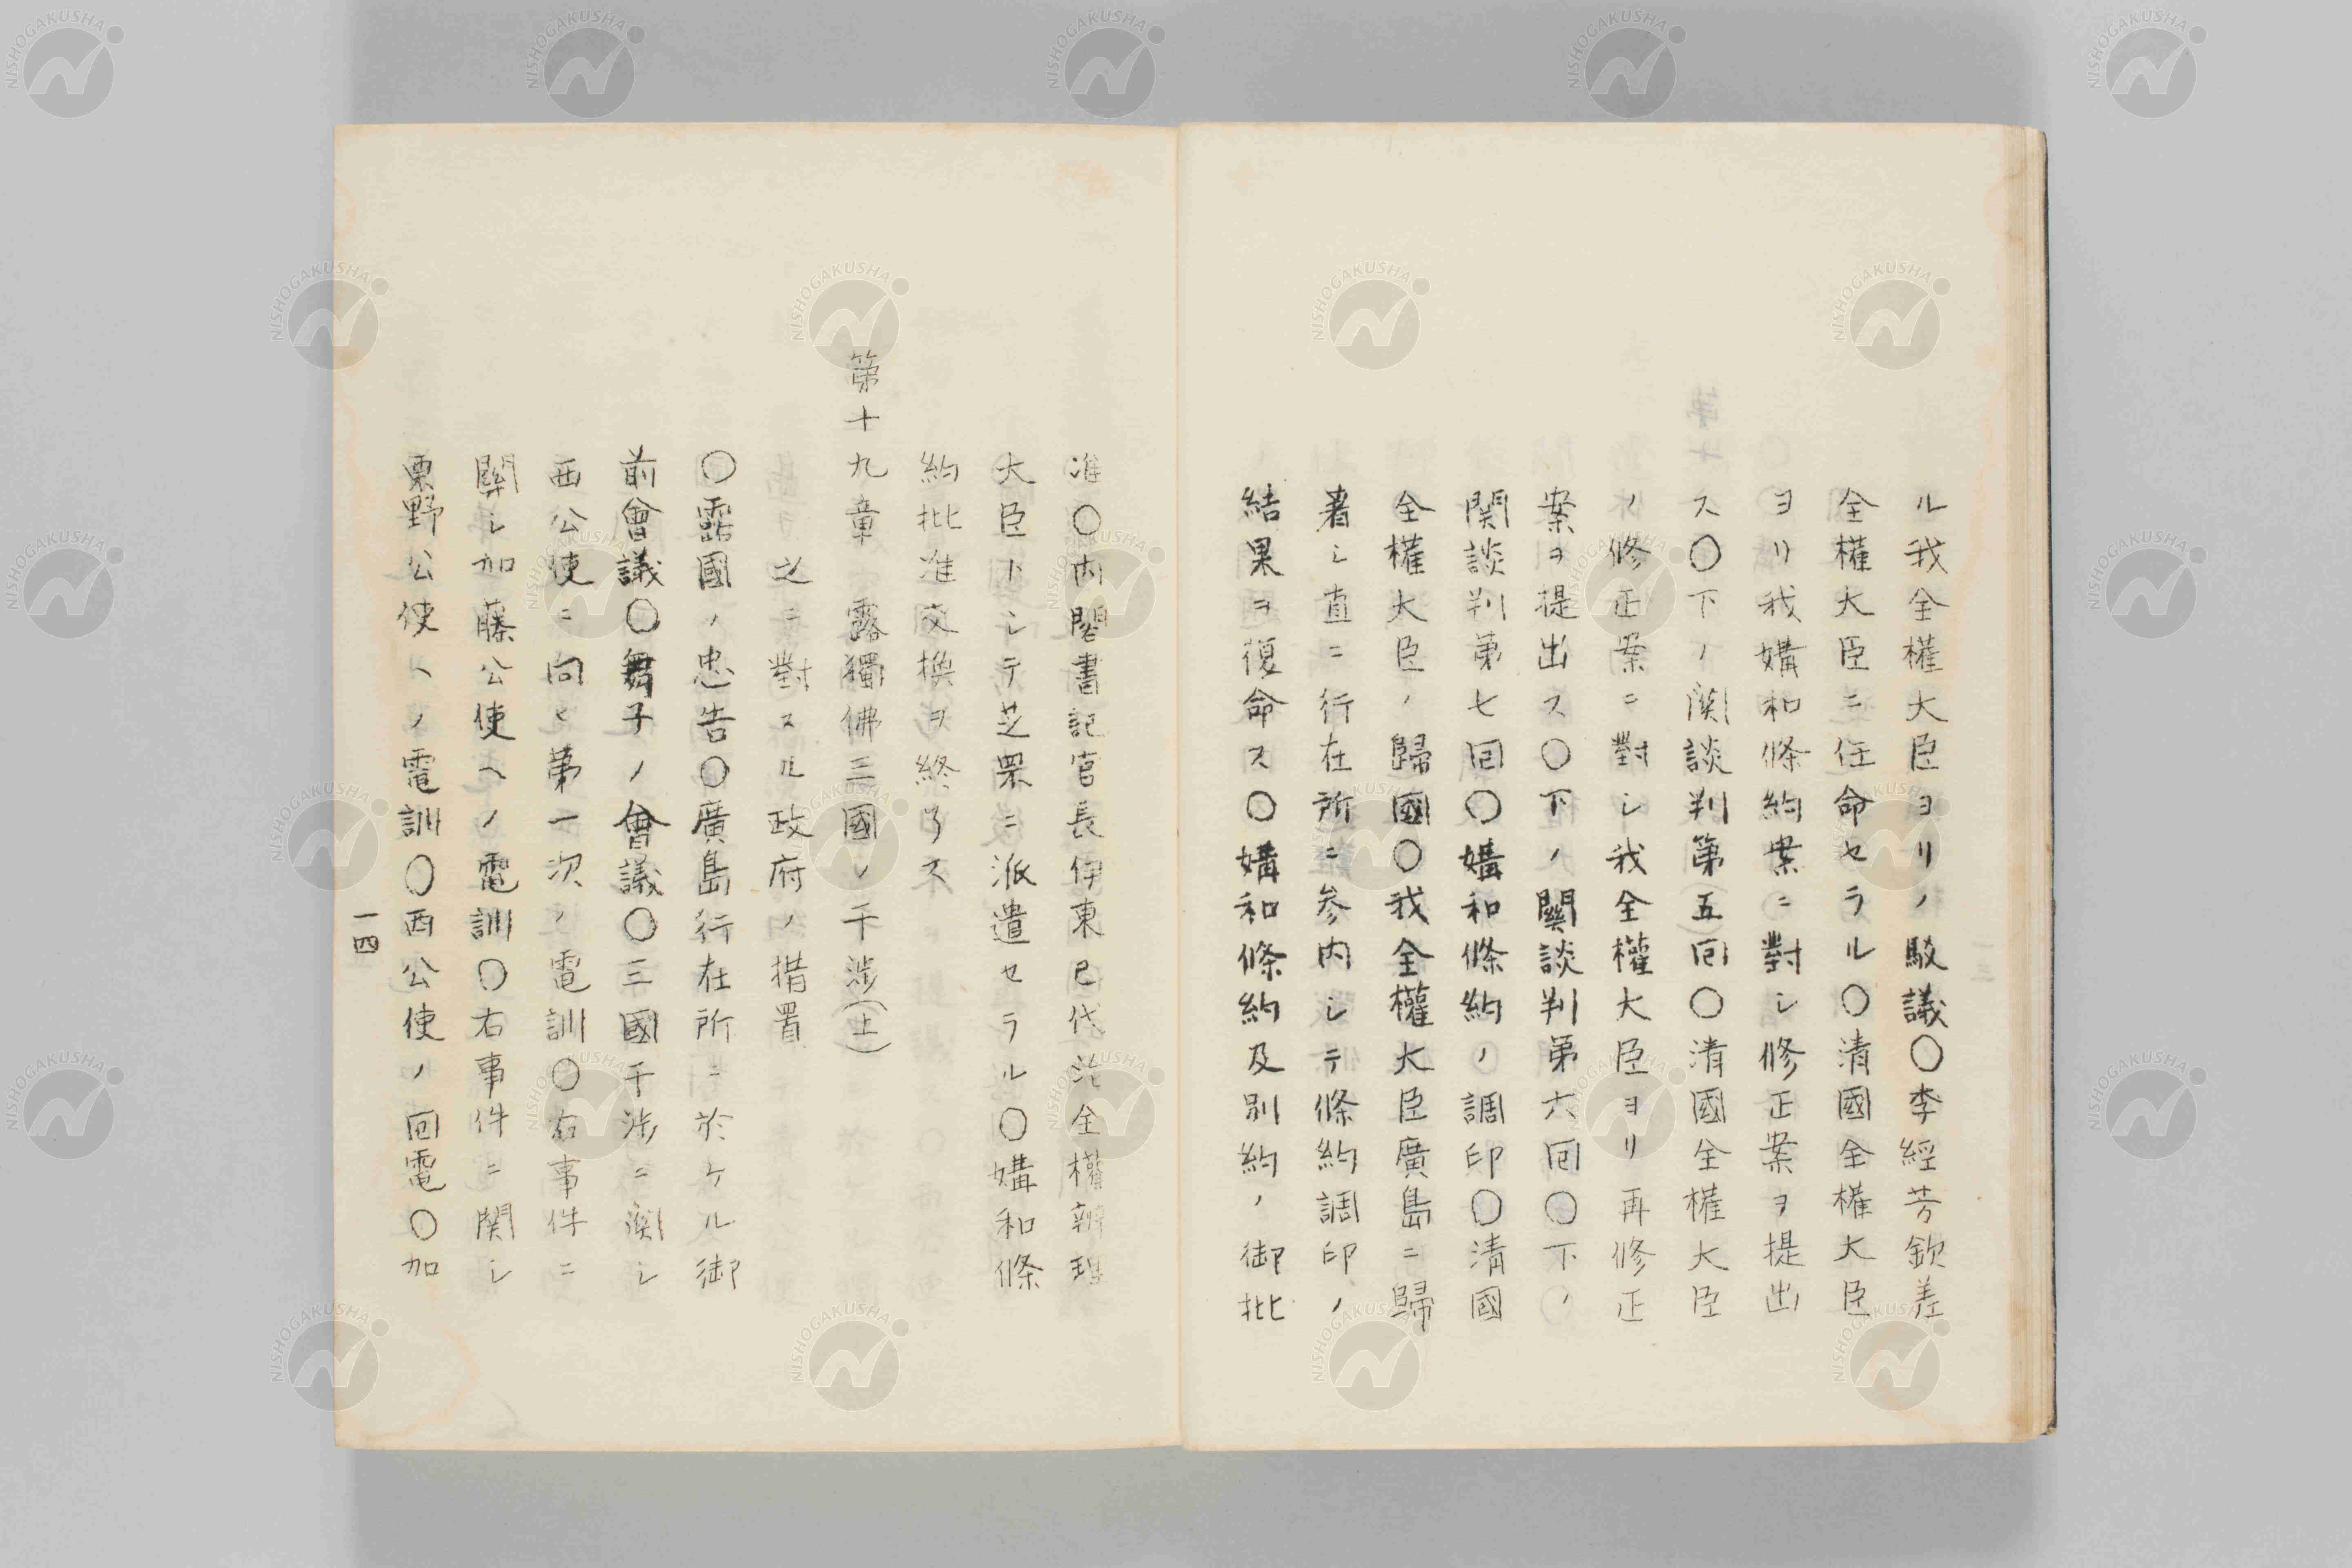 ル我全權大臣ヨリノ駁議〇李經芳欽差
全權大臣ニ任命セラル〇清國全權大臣
ヨリ我媾和條約案ニ對シ修正案ヲ提出
ス〇下ノ関談判第五回〇清國全權大臣
ノ修正案ニ對シ我全權大臣ヨリ再修正
案ヲ提出ス〇下ノ關談判第六回〇下ノ
関談判第七回〇媾和條約ノ調印〇清國
全權大臣ノ歸國〇我全權大臣廣島ニ歸
着シ直ニ行在所ニ参内シテ條約調印ノ
結果ヲ復命ス〇媾和條約及別約ノ御批
准〇内閣書記官長伊東巳代治全權辨理
大臣トシテ芝罘ニ派遣セラル〇媾和條
約批准交換ヲ終了ス
第十九章 露獨佛三國ノ干渉(上)
之ニ對スル政府ノ措置
〇露國ノ忠告〇廣島行在所ニ於ケル御
前會議〇舞子ノ會議〇三國干渉ニ関シ
西公使ニ向ヒ第一次ノ電訓〇右事件ニ
関シ加藤公使ヘノ電訓〇右事件ニ関シ
栗野公使ヘノ電訓〇西公使ノ回電〇加
一四
NISHOGAKUSHA